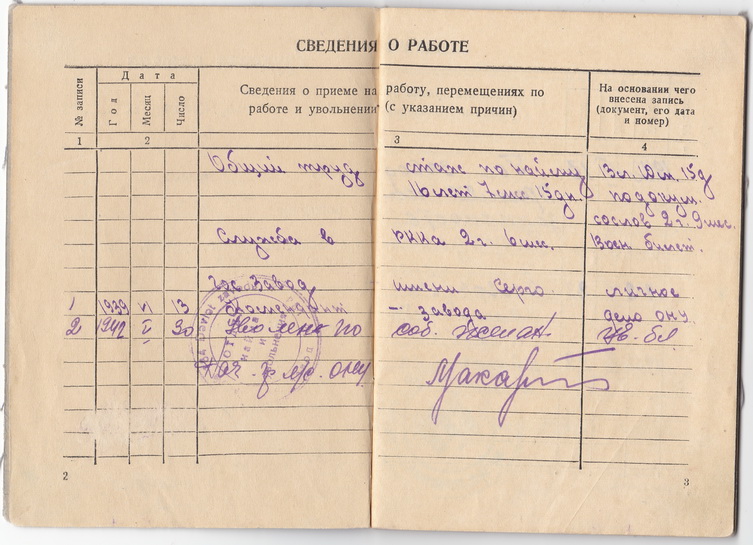 СВЕДЕНИЯ О РАБОТЕ
№ записи
Дата
Год
Месяц
Число
Сведения о приеме на работу, перемещениях по
работе и увольнении (с указанием причин)
На основании чего
внесена запись
(документ, его дата
и номер)
1 2 3 4
Общий труд стаж по найму 13л. 10м. 15д
16 лет 7 мес 15 дн. по докум.
со слов 2 г. 9 мес.
Служба в РККА 2 г. 6 мес. Воен. билет.
Гос. Завод имени Серго личное
1 1939 13 Комендант - завода дело ОНУ
2 1942 I 30 Уволена по соб. желан.
ОНУ Макар
2
3